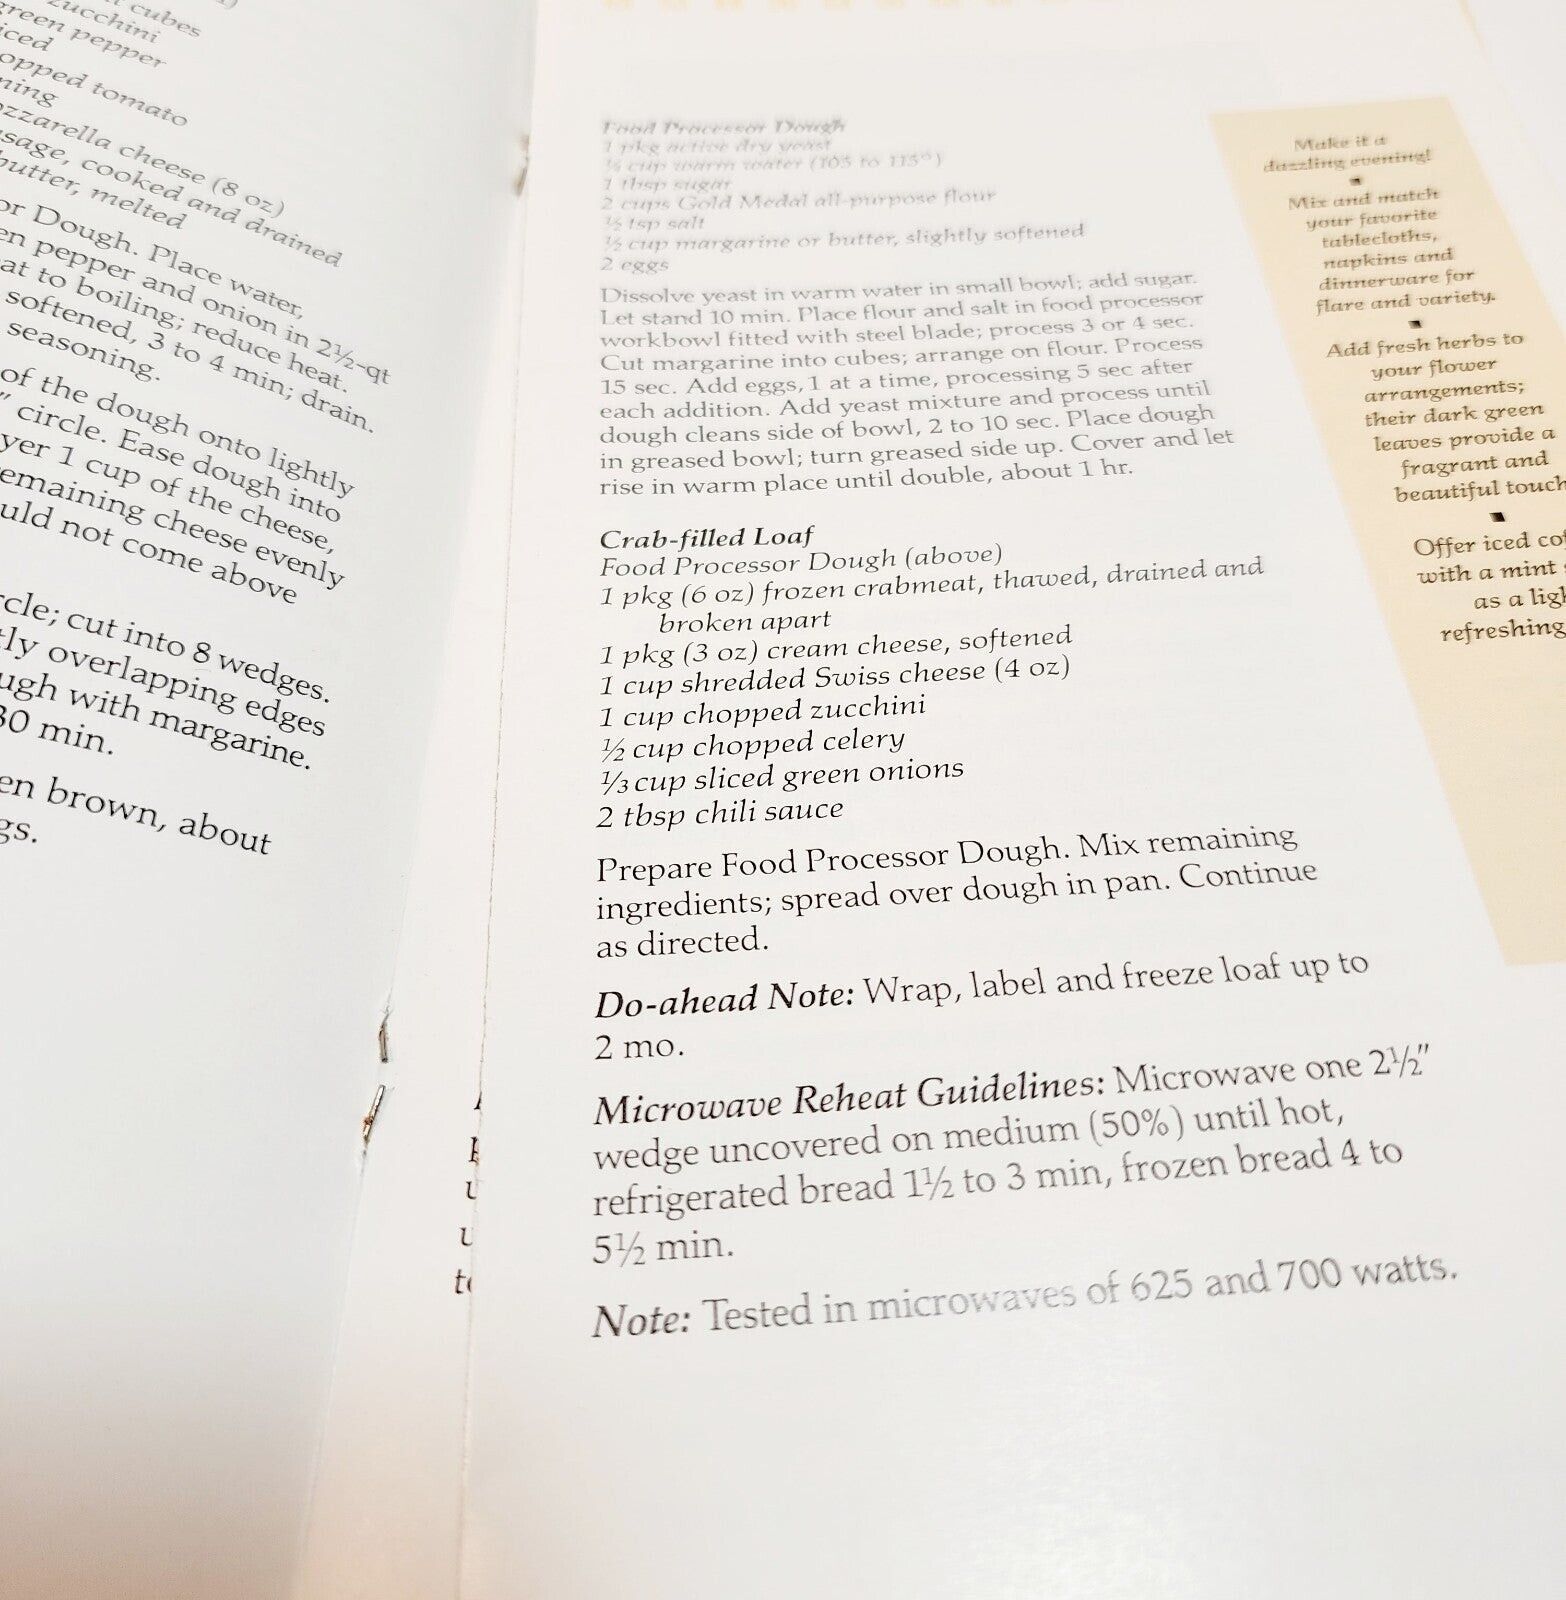 cubes
zucchini
green pepper
opped tomato
ning
ozzarella cheese (8 oz)
sage, cooked and drained
butter, melted
or Dough. Place water,
en pepper and onion in 2½-qt
at to boiling; reduce heat.
softened, 3 to 4 min; drain.
seasoning.
of the dough onto lightly
" circle. Ease dough into
yer 1 cup of the cheese,
emaining cheese evenly
uld not come above
rcle; cut into 8 wedges.
tly overlapping edges
ugh with margarine.
30 min.
en brown, about
gs.
Food Processor Dough
1 pkg active dry yeast
cup warm water (105 to 115°)
1 tbsp sugar
2 cups Gold Medal all-purpose flour
½ tsp salt
½ cup margarine or butter, slightly softened
2 eggs
Dissolve yeast in warm water in small bowl; add sugar.
Let stand 10 min. Place flour and salt in food processor
workbowl fitted with steel blade; process 3 or 4 sec.
Cut margarine into cubes; arrange on flour. Process
15 sec. Add eggs, 1 at a time, processing 5 sec after
each addition. Add yeast mixture and process until
dough cleans side of bowl, 2 to 10 sec. Place dough
in greased bowl; turn greased side up. Cover and let
rise in warm place until double, about 1 hr.
Crab-filled Loaf
Food Processor Dough (above)
1 pkg (6 oz) frozen crabmeat, thawed, drained and
broken apart
1 pkg (3 oz) cream cheese, softened
1 cup shredded Swiss cheese (4 oz)
1 cup chopped zucchini
½ cup chopped celery
⅓ cup sliced green onions
2 tbsp chili sauce
Prepare Food Processor Dough. Mix remaining
ingredients; spread over dough in pan. Continue
as directed.
Do-ahead Note: Wrap, label and freeze loaf up to
2 mo.
Microwave Reheat Guidelines: Microwave one 2½"
wedge uncovered on medium (50%) until hot,
refrigerated bread 1½ to 3 min, frozen bread 4 to
5½ min.
Note: Tested in microwaves of 625 and 700 watts.
Make it a
dazzling evening!
Mix and match
your favorite
tablecloths,
napkins and
dinnerware for
flare and variety.
Add fresh herbs to
your flower
arrangements;
their dark green
leaves provide a
fragrant and
beautiful touch
Offer iced cof
with a mint s
as a ligh
refreshing